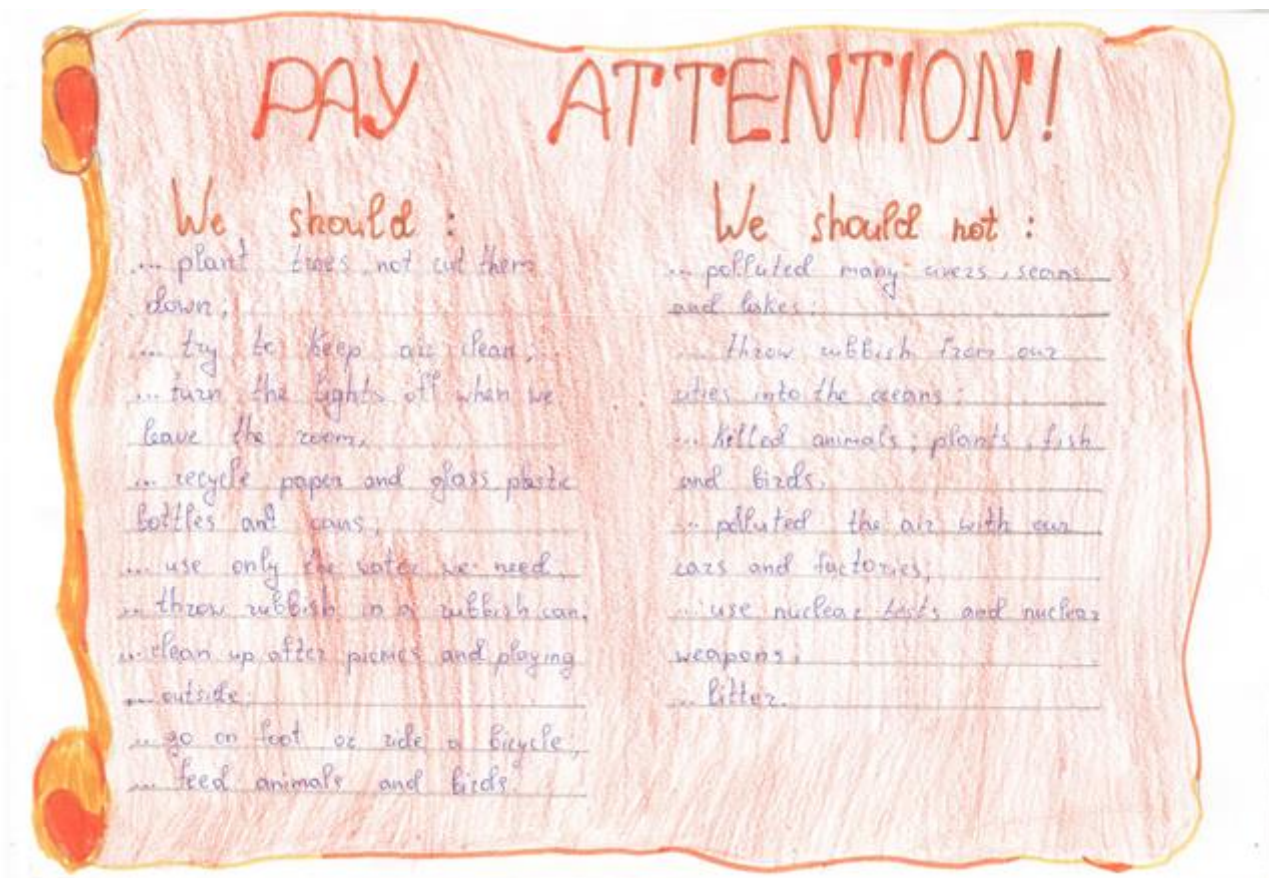 PAY ATTENTION!
We should :
... plant trees not cut them
down;
... try to keep air clean;
... turn the lights off when we
leave the room,
... recycle paper and glass plastic
bottles ant cans,
... use only the water we need,
... throw rubbish in a rubbish can,
... clean up after picnics and playing
... outside;
... go on foot or ride a bicycle;
... feed animals and birds.
We should not :
... polluted many rivers, seans
and lakes;
... throw rubbish from our
cities into the oceans;
... killed animals; plants, fish
and birds;
... polluted the air with our
cars and factories;
... use nuclear tests and nuclear
weapons;
... litter.